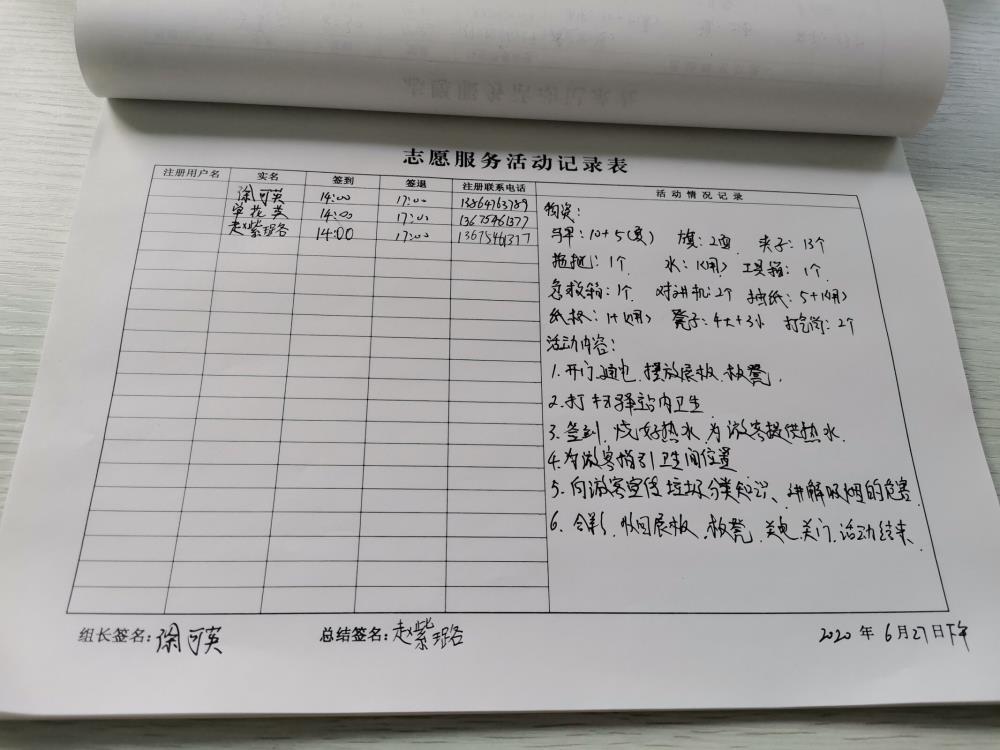 志愿服务活动记录表
注册用户名 实名 签到 签退 注册联系电话 活动情况记录
徐可英 14:00 17:00 13864763789
单花英 14:00 17:00 13675461377
赵紫璐 14:00 17:00 13675461377
物资:
马甲:10+5(夏) 旗:2面 夹子:13个
拖把:1个 水:1(用) 工具箱:1个
急救箱:1个 对讲机:2个 抽纸:5+1(用)
纸杯:1+1(用) 凳子:4大+3小 打气筒:2个
活动内容:
1.开门通电,摆放展板,板凳.
2.打扫驿站内卫生
3.签到,烧好热水,为游客提供热水.
4.为游客指引卫生间位置
5.向游客宣传垃圾分类知识、讲解吸烟的危害
6.合影,收回展板,板凳,关电,关门,活动结束.
组长签名:徐可英 总结签名:赵紫璐 2020年6月27日下午